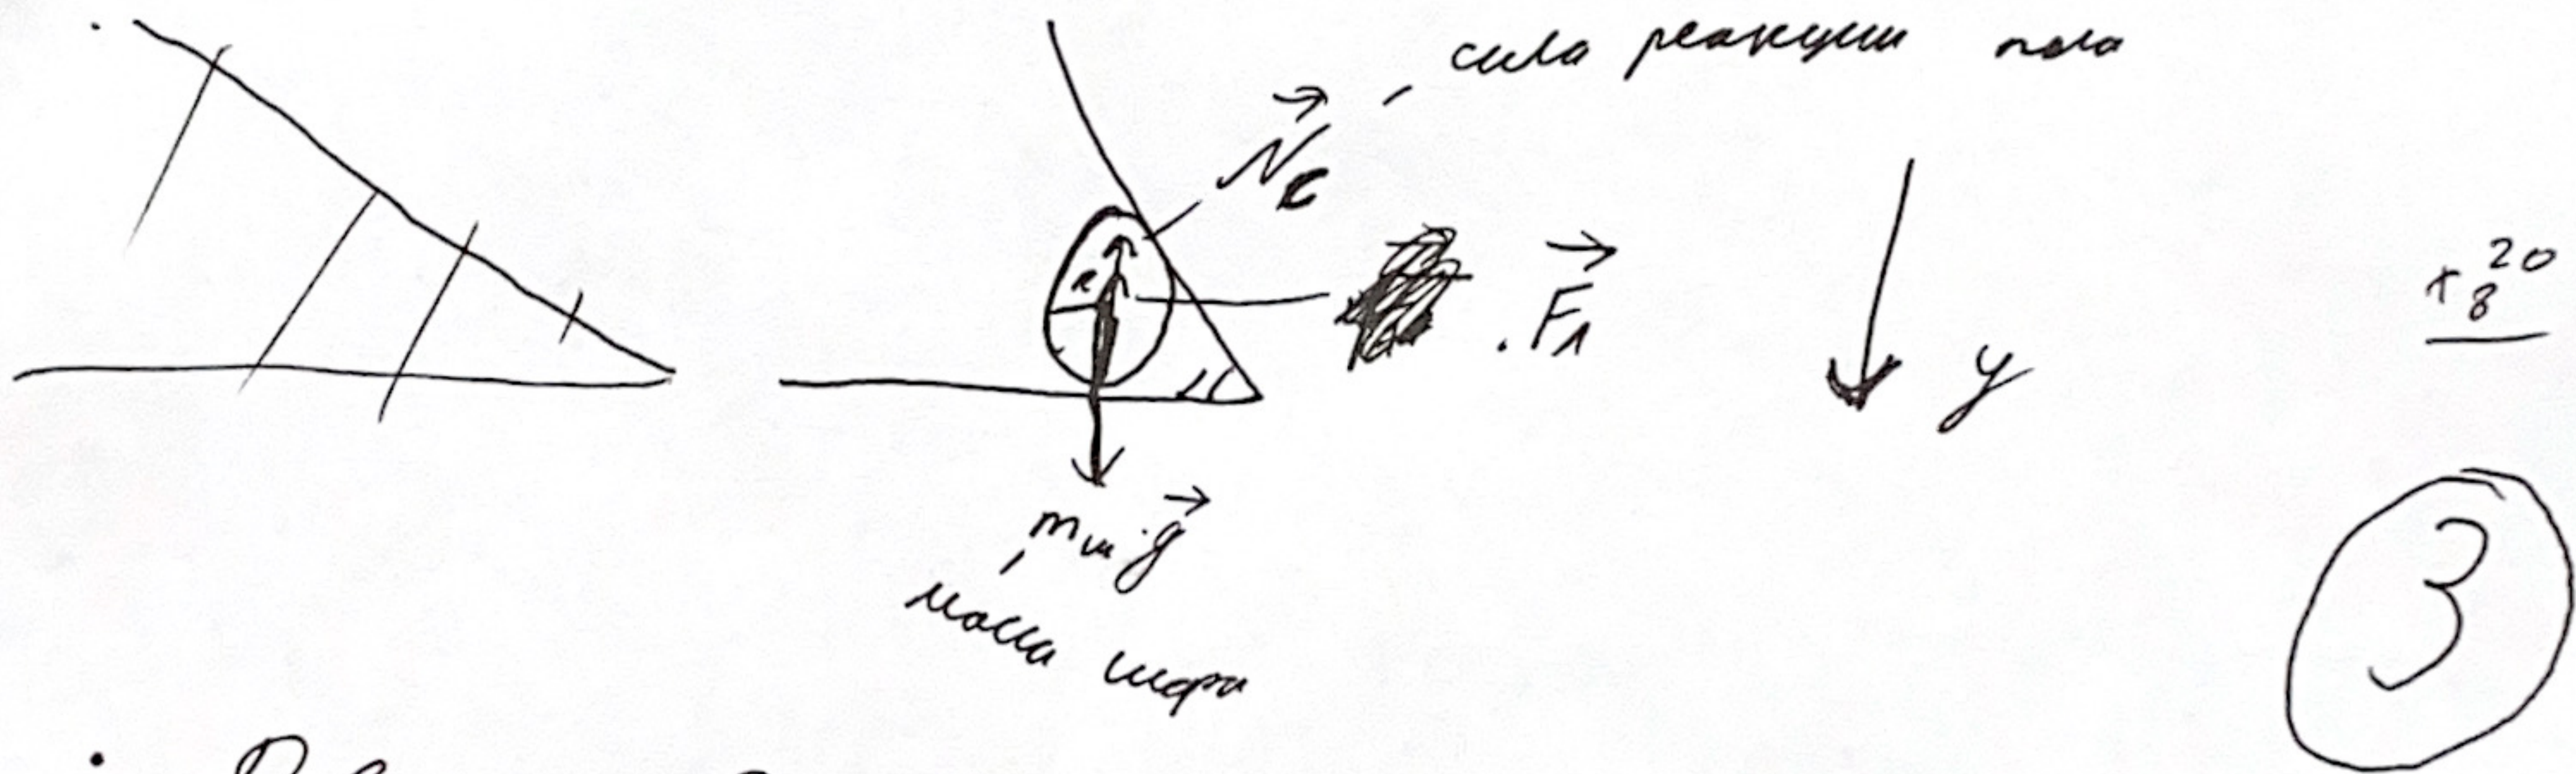 сила реакции пола
N
R
F1
y
+ 20
8
α
mш·g
масса шара
3